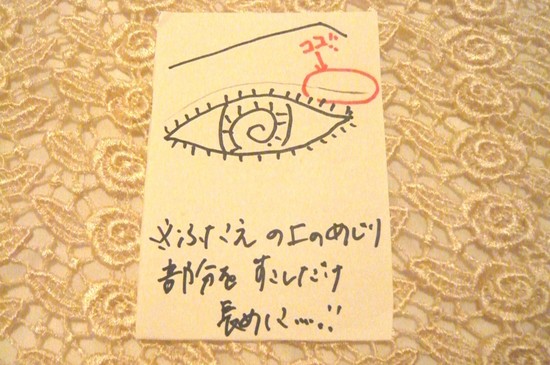 ココ!!
※ふたえ の上のめじり
部分を すこしだけ
長めに....!!